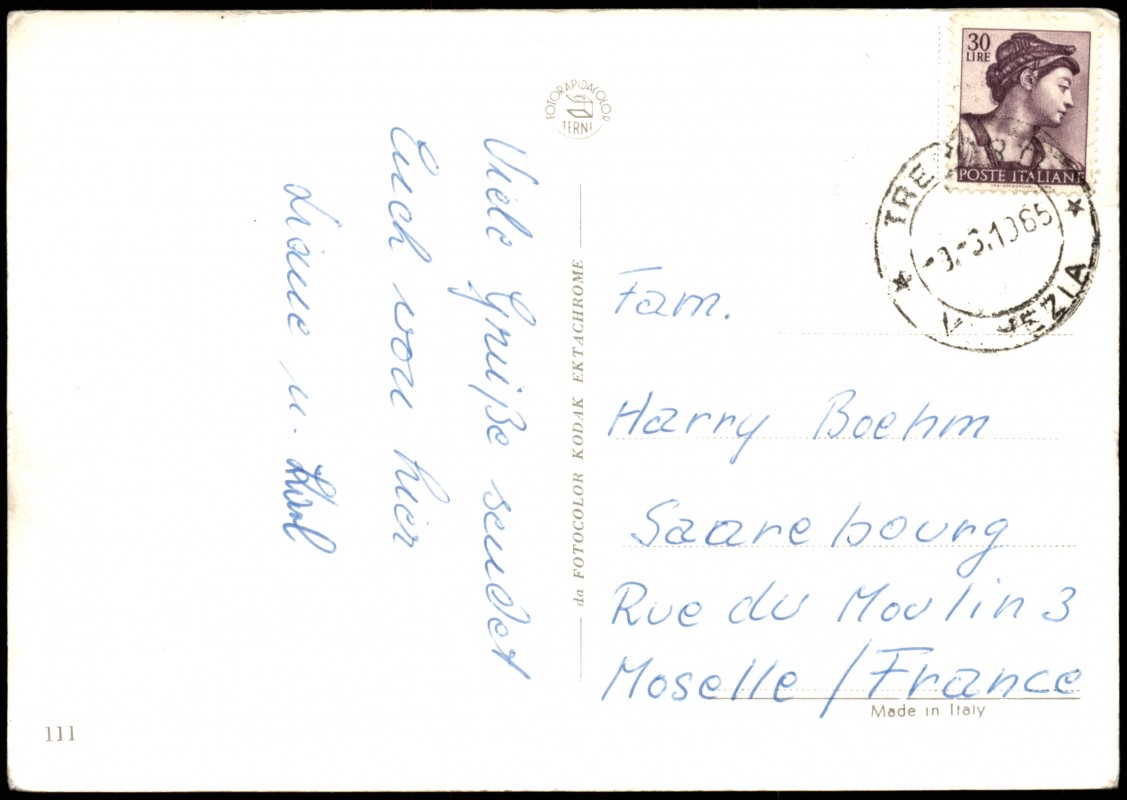 Viele Grüße sendet
Euch von hier
Liane u. Karl
FOTORAPIDACOLOR
TERNI
da FOTOCOLOR KODAK EKTACHROME
30
LIRE
POSTE ITALIANE
1965
Fam.
Harry Boehm
Saarebourg
Rue du Moulin 3
Moselle / France
Made in Italy
111